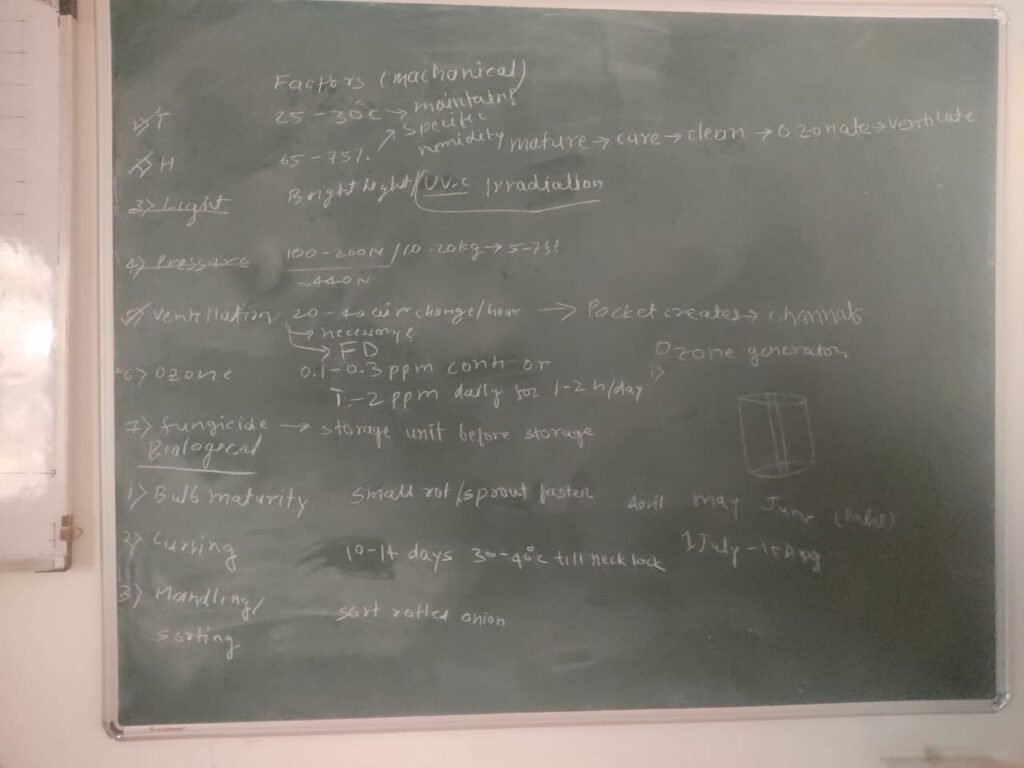 Factors (machanical)
✓ T 25 - 30°C → maintains specific humidity
✓ H 65 - 75%
mature → cure → clean → Ozonate → Ventilate
3> Light Bright light / UV-C Irradiation
4> Pressure 100-200N / 10-20kg → 5-7ft
~440N
5> Ventillation 20-40 air change/hour → Pocket creates → channals
↳ necessary
↳ FD
6> Ozone 0.1-0.3 ppm conti or
1-2 ppm daily for 1-2 h/day
Ozone generator
1>
7> Fungicide → storage unit before storage
Biological
1> Bulb maturity small rot/sprout faster
April May June
2> Cursing 10-14 days 30-40°C till neck lock
1 July - 15 Aug
3> Handling/ sort rotted onion
sorting